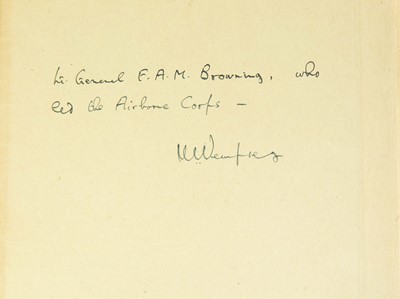 Lt. General F.A.M. Browning, who
led the Airborne Corps –
M Dempsey